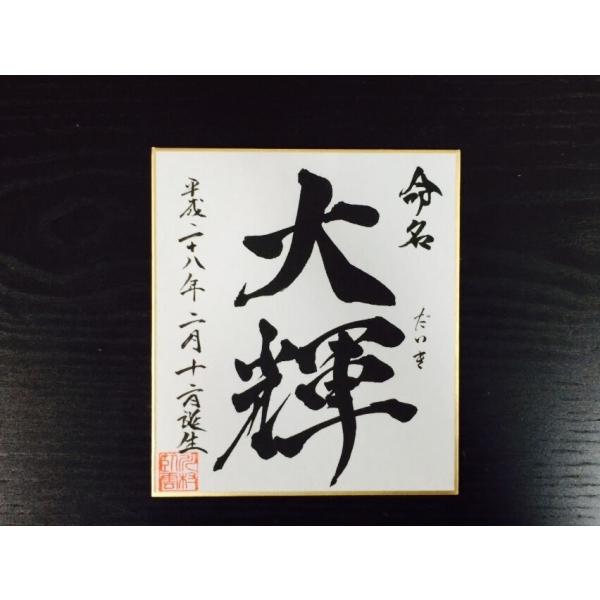 命名
だいき
大輝
平成二十八年二月十日誕生